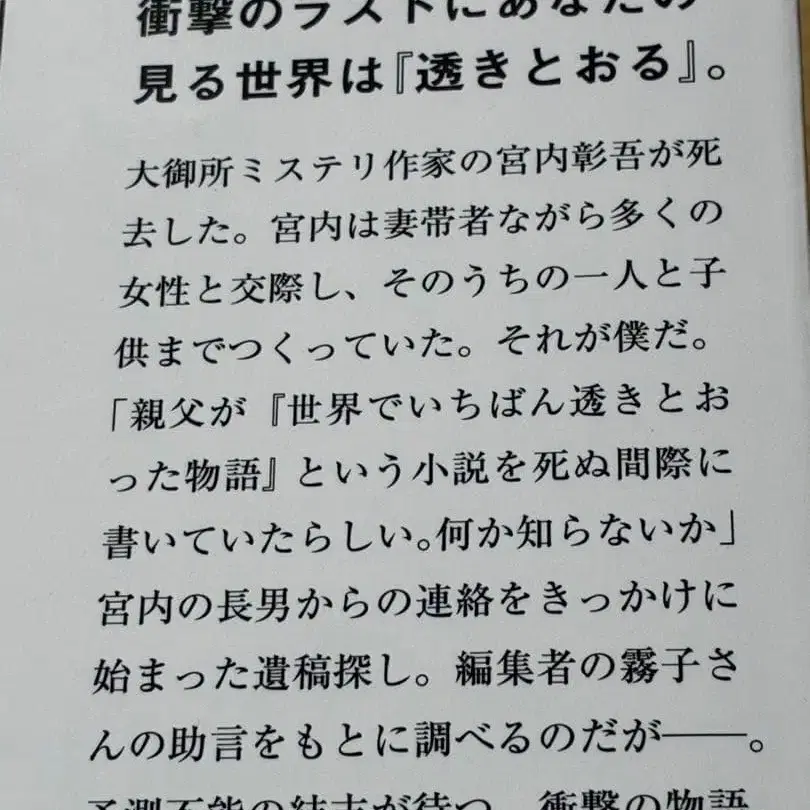 衝撃のラストにあなたの
見る世界は『透きとおる』。
大御所ミステリ作家の宮内彰吾が死
去した。宮内は妻帯者ながら多くの
女性と交際し、そのうちの一人と子
供までつくっていた。それが僕だ。
「親父が『世界でいちばん透きとお
った物語』という小説を死ぬ間際に
書いていたらしい。何か知らないか」
宮内の長男からの連絡をきっかけに
始まった遺稿探し。編集者の霧子さ
んの助言をもとに調べるのだが――。
予測不能の結末が待つ、衝撃の物語